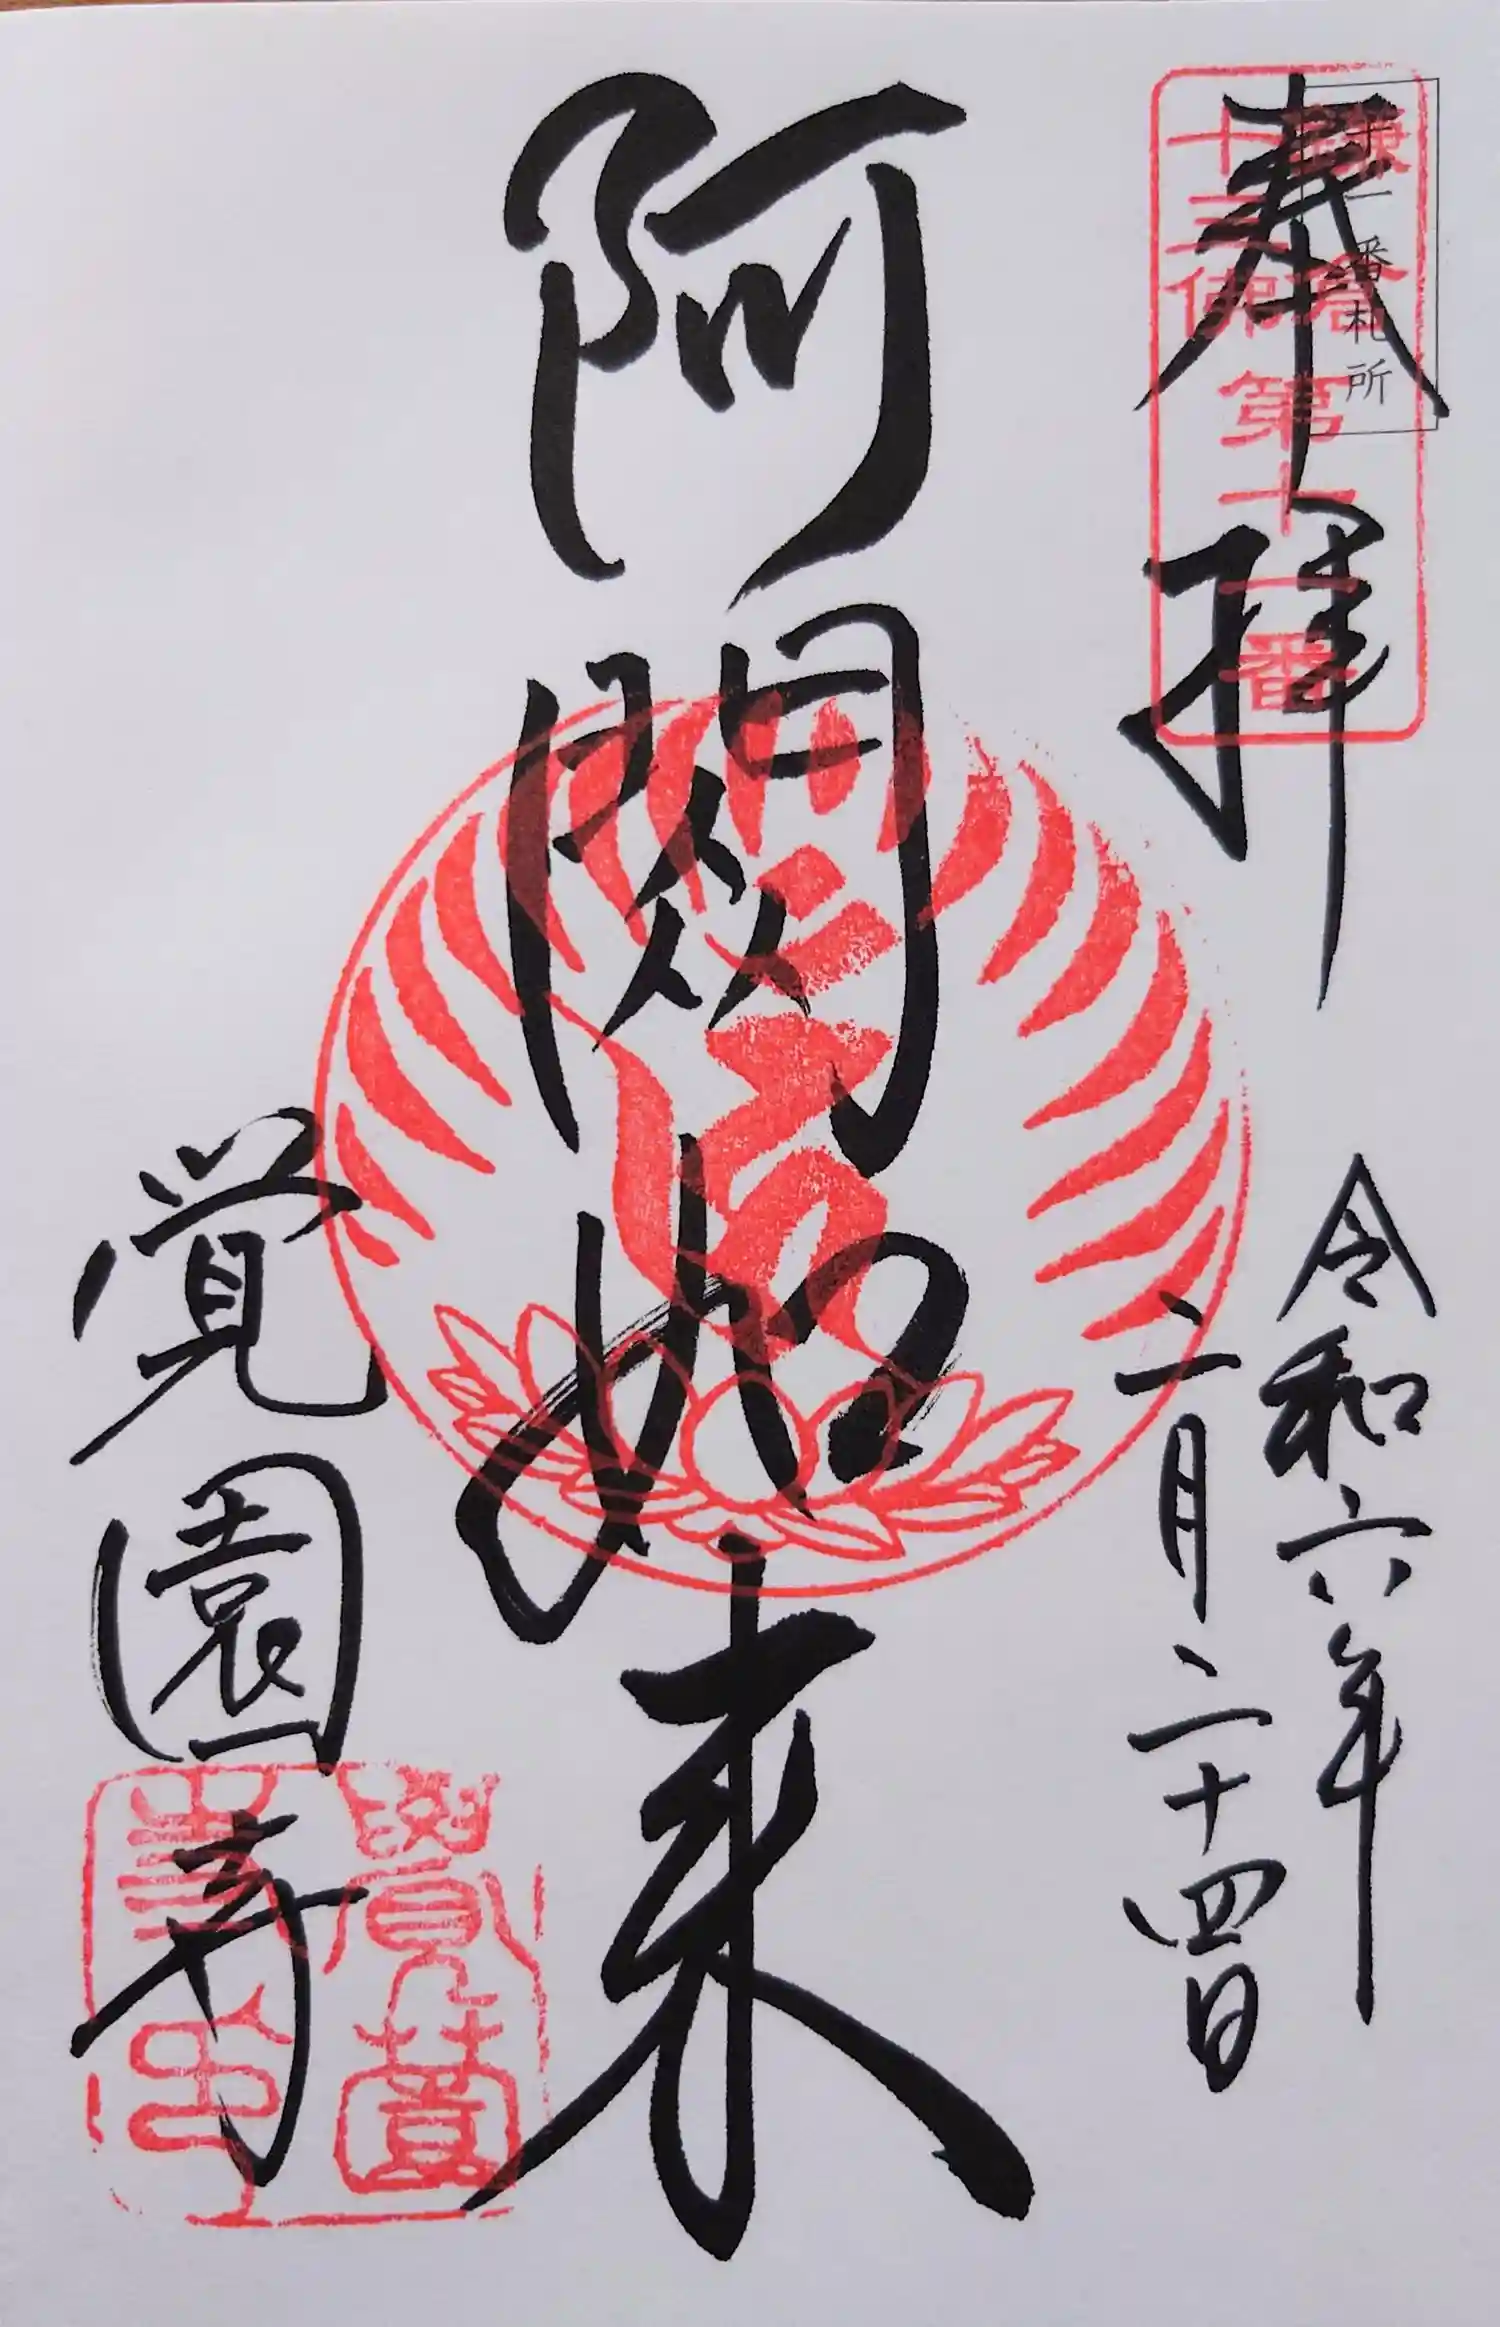 十一番札所
奉拝
鎌倉
十三佛
第十一番
令和六年
二月二十四日
阿閦如来
覚園寺
覺園
寺印